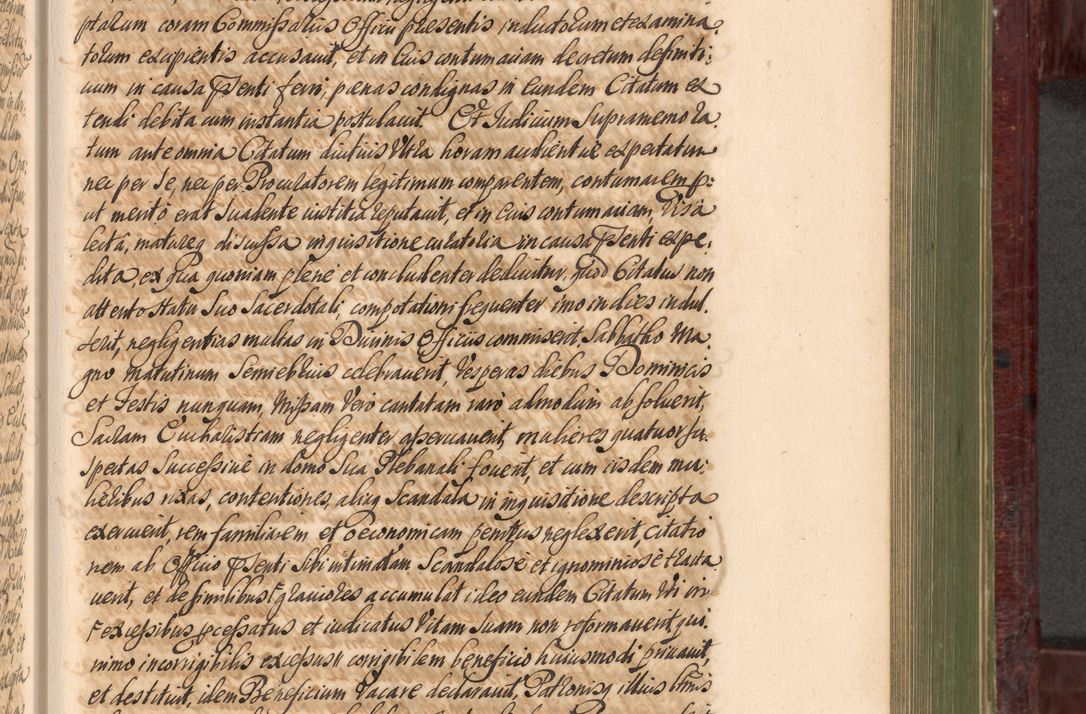 ptarum coram Commissarijs Officij praesentis inductorum et examina-
torum excipientis accusavit, et in Eius contumaciam decretum definiti-
uum in causa Psenti ferri, paenas condignas in eundem Citatum ex
tendi debita cum instantia postulauit. Et Iudicium Supramemora
tum ante omnia Citatum diutius Ultra horam audientiae expectatum
nec per Se, nec per Procuratorem legitimum comparentem, contumacem p:
ut merito erat Suadente iustitia reputauit, et in Eius contumaciam, Visa
lectâ, matureq discussa inquisitione curatoria in causa Psenti expe-
dita, ex Qua quoniam plene et concludenter deducitur, quod Citatus non
attento Statu Suo Sacerdotali, compotationi frequenter imo in dies indul
serit, negligentias multas in Diuinis Officijs commiserit, Sabbatho Ma
gno matutinum Semiebrius celebrauerit, Vesperas diebus Dominicis
et Festis nunquam, Missam Vero cantatam raro admodum absoluerit,
Sacram Eucharistiam negligenter asseruauerit, mulieres quatuor su-
spectas Successiuè in domo Sua Plebanali fouerit, et cum iisdem mu-
lieribus rixas, contentiones, aliaq Scandala in inquisitione descripta
exercuerit, rem familiarem et oeconomicam penitus neglexerit, citatio
nem ab Officio Psenti Sibi intimatam Scandalosè et ignominiosè tracta
uerit, et de similibus grauiores accumulat ideo eundem Citatum Uti in
excessibus pcessatus et iudicatus Vitam Suam non reformauerit qui
nimo incorrigibilis excessus corrigibilem beneficio huiusmodi priuauit,
et destituit, idem Beneficium Vacare declarauit, Patronisq illius ltmis